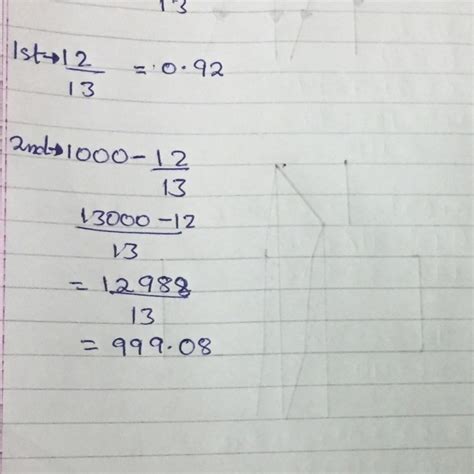 13
1st→ 12/13 = 0.92
2nd→ 1000 - 12/13
13000 - 12/13
= 12988/13
= 999.08